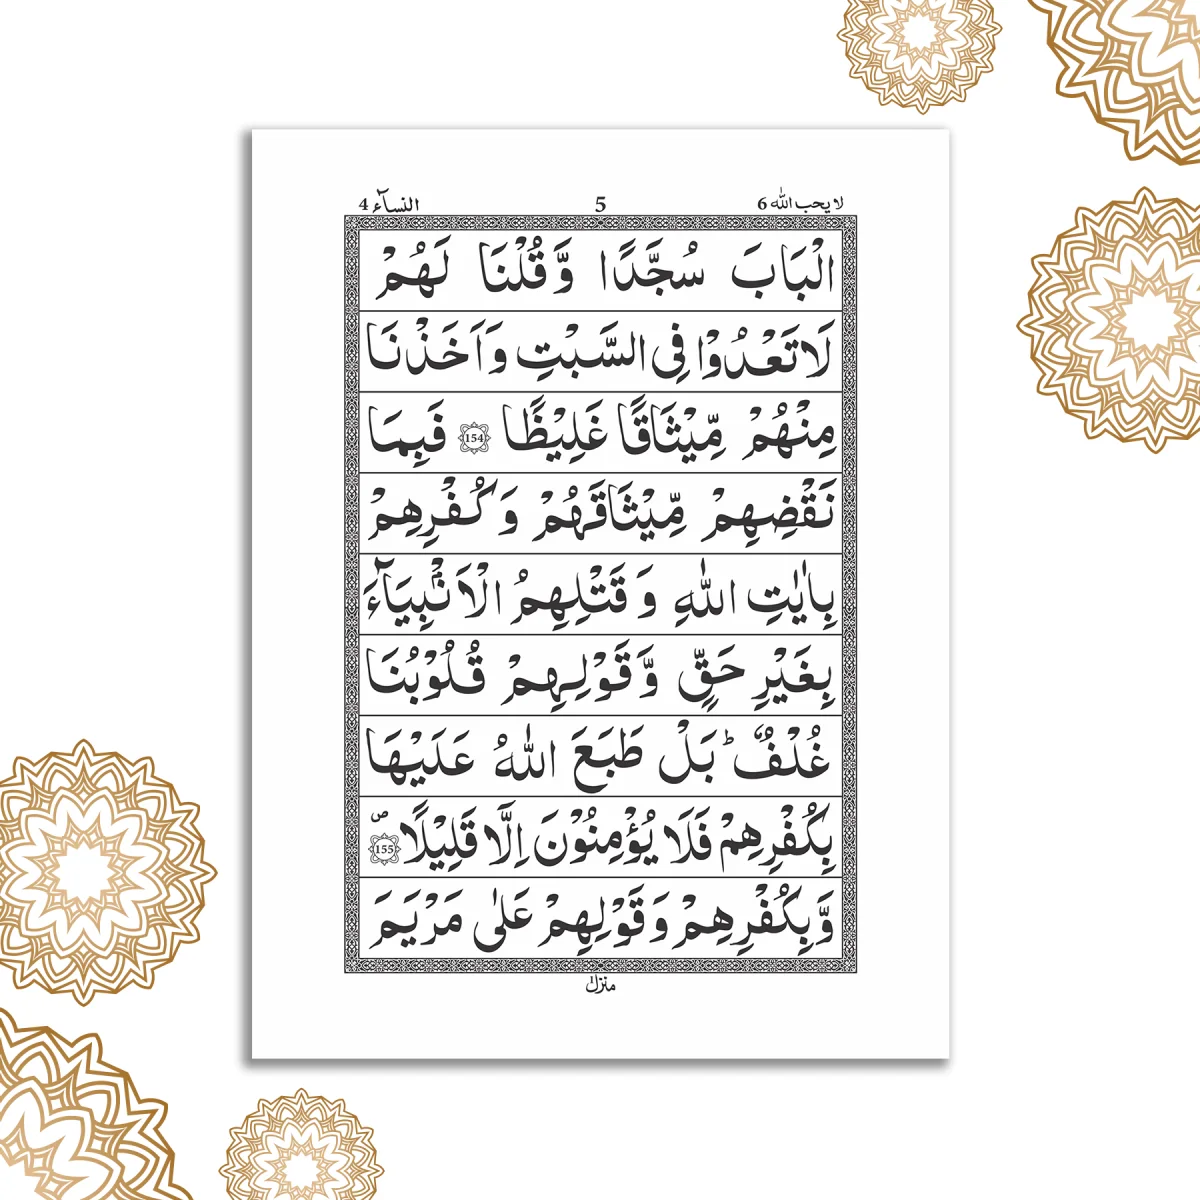 لا يحب الله 6 5 النسآء 4
الْبَابَ سُجَّدًا وَّقُلْنَا لَهُمْ
لَا تَعْدُوْا فِى السَّبْتِ وَاَخَذْنَا
مِنْهُمْ مِّيْثَاقًا غَلِيْظًا 154 فَبِمَا
نَقْضِهِمْ مِّيْثَاقَهُمْ وَكُفْرِهِمْ
بِاٰيٰتِ اللّٰهِ وَقَتْلِهِمُ الْاَنْۢبِيَآءَ
بِغَيْرِ حَقٍّ وَّقَوْلِهِمْ قُلُوْبُنَا
غُلْفٌ ؕ بَلْ طَبَعَ اللّٰهُ عَلَيْهَا
بِكُفْرِهِمْ فَلَا يُؤْمِنُوْنَ اِلَّا قَلِيْلًا 155 ۪
وَّبِكُفْرِهِمْ وَقَوْلِهِمْ عَلٰى مَرْيَمَ
منزل